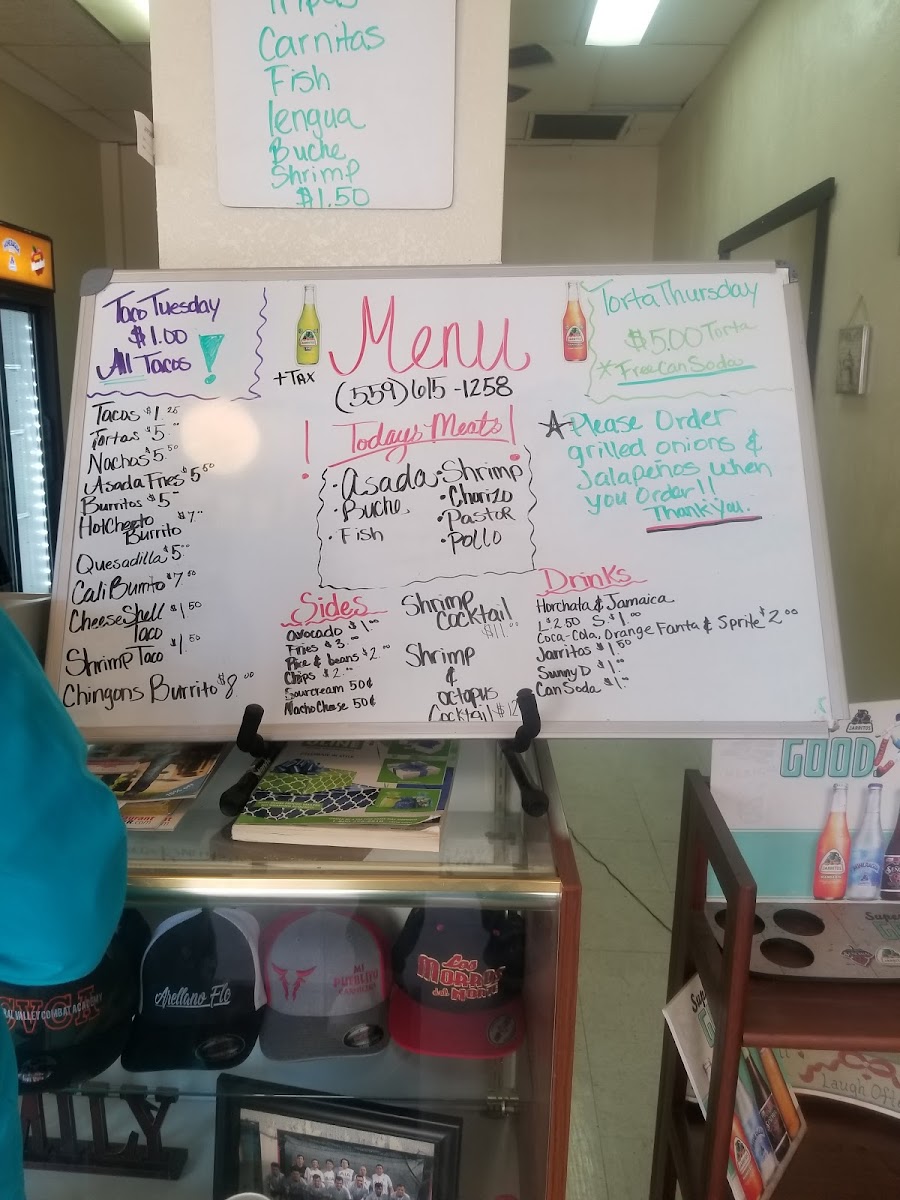 Tripas
Carnitas
Fish
lengua
Buche
Shrimp
$1.50
Taco Tuesday
$1.00
All Tacos !
+TAX
Menu
(559) 615-1258
Torta Thursday
$5.00 Torta
*Free Can Soda
Tacos $1.25
Tortas $5.00
Nachos $5.50
Asada Fries $5.50
Burritos $5.00
Hot Cheeto $7.00
Burrito
Quesadilla $5.00
Cali Burrito $7.50
Cheese Shell $1.50
Taco
Shrimp Taco $1.50
Chingons Burrito $8.00
! Todays Meats !
·Asada
·Buche
·Fish
·Shrimp
·Chorizo
·Pastor
·Pollo
Please Order
grilled onions &
Jalapeños when
you order!!
Thank you.
Sides
avocado $1.00
Fries $3.00
Rice & beans $2.00
Chips $2.00
Sourcream 50¢
Nacho Cheese 50¢
Shrimp
Cocktail
$11.00
Shrimp
&
octopus
Cocktail $12
Drinks
Horchata & Jamaica
L $2.50 S $1.00
Coca-Cola, Orange Fanta & Sprite $2.00
Jarritos $1.50
Sunny D $1.00
Can Soda $1.00
JARRITOS
GOOD
Arellano Flo
MI
Los
Morros
del Norte
VALLEY COMBAT ACADEMY
MILY
Super
Laugh Often